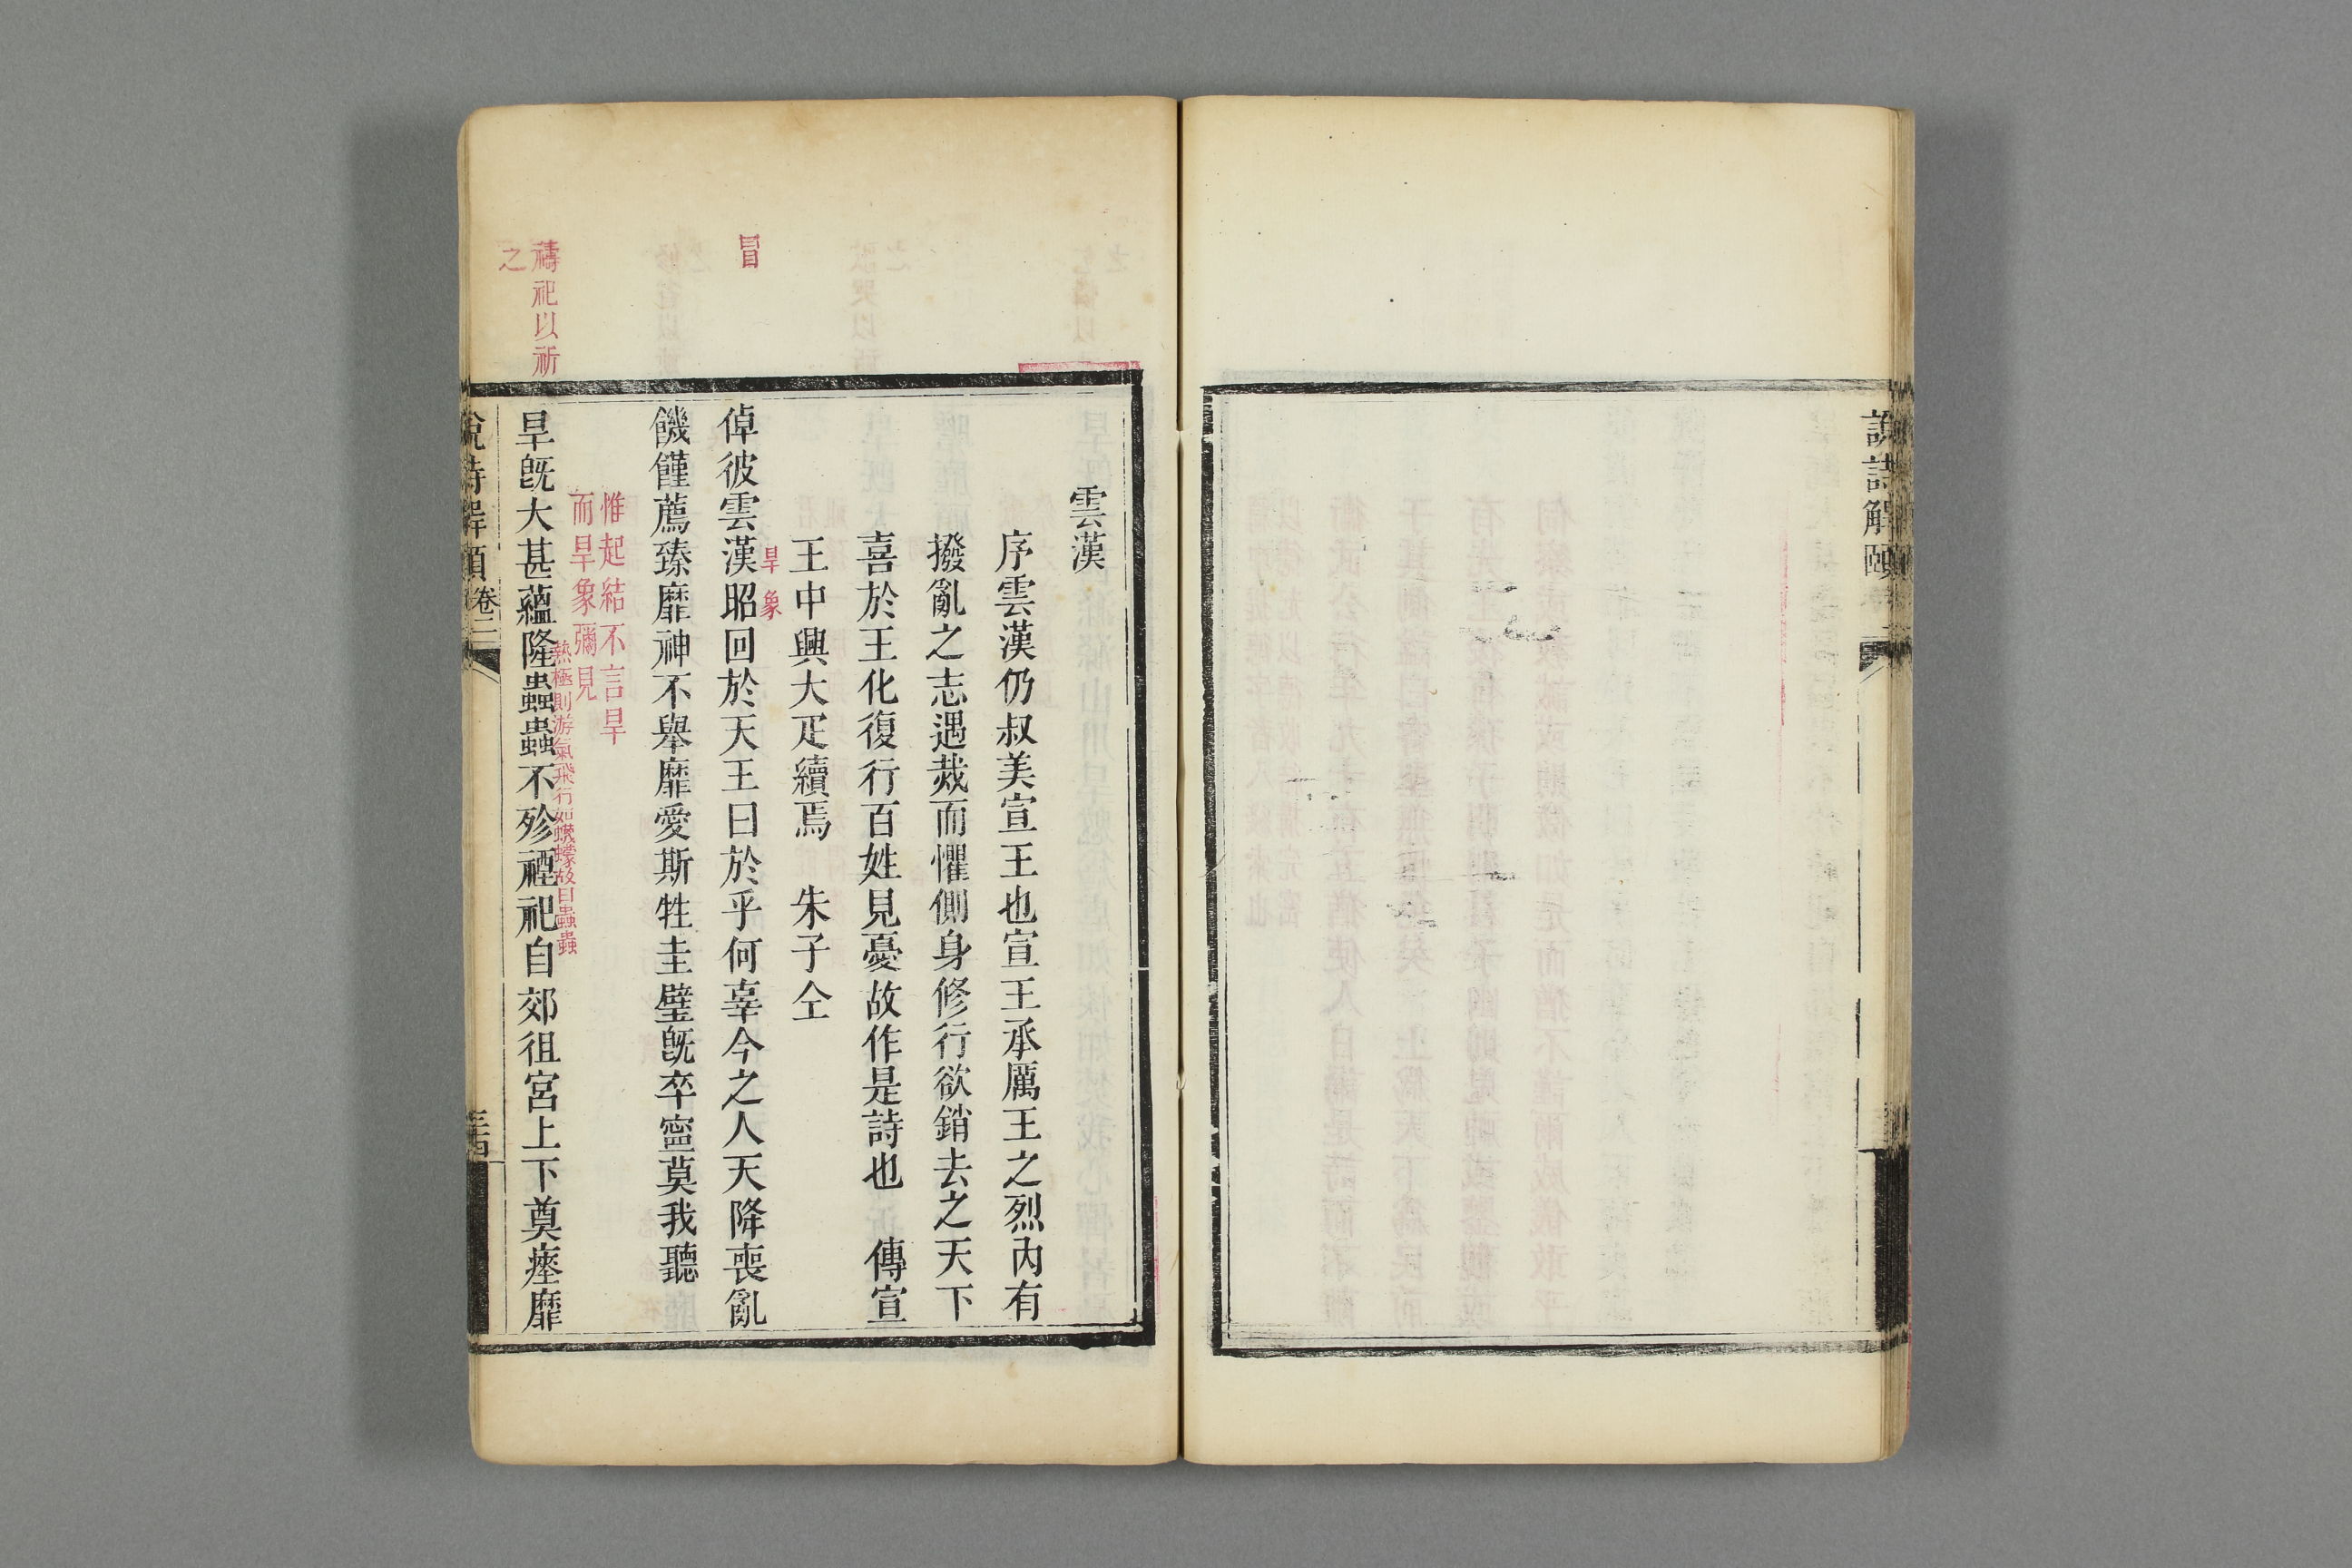 說詩解頤
雲漢
序雲漢仍叔美宣王也宣王承厲王之烈內有
撥亂之志遇烖而懼側身修行欲銷去之天下
喜於王化復行百姓見憂故作是詩也　傳宣
王中興大疋續焉　朱子仝
旱象
冒
倬彼雲漢昭回於天王曰於乎何辜今之人天降喪亂
饑饉薦臻靡神不舉靡愛斯牲圭璧旣卒寍莫我聽
惟起結不言旱
而旱象彌見
熱極則游氣飛行如蠛蠓故曰蟲蟲
禱祀以祈
之
旱旣大甚蘊隆蟲蟲不殄禋祀自郊徂宮上下奠瘞靡
說詩解頤 卷二